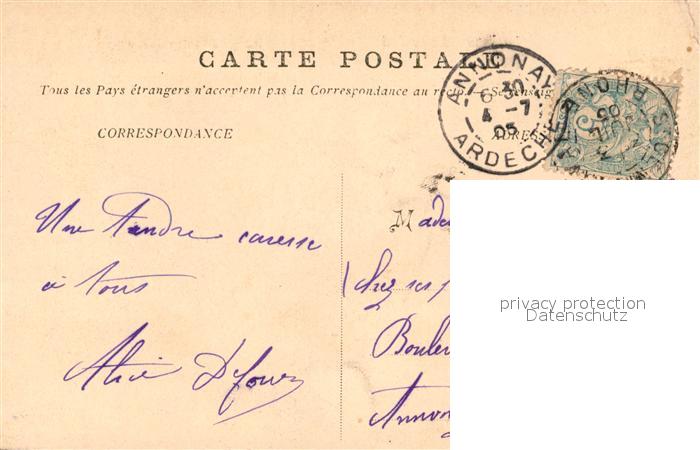 CARTE POSTALE
Tous les Pays étrangers n'acceptent pas la Correspondance au recto
CORRESPONDANCE
ADRESSE
ANNONAY
6 30
4 - 7
05
ARDECHE
RHONE
05
Une tendre caresse
à tous
Alice
Made
Chez ses
Boule
Annon
privacy protection
Datenschutz